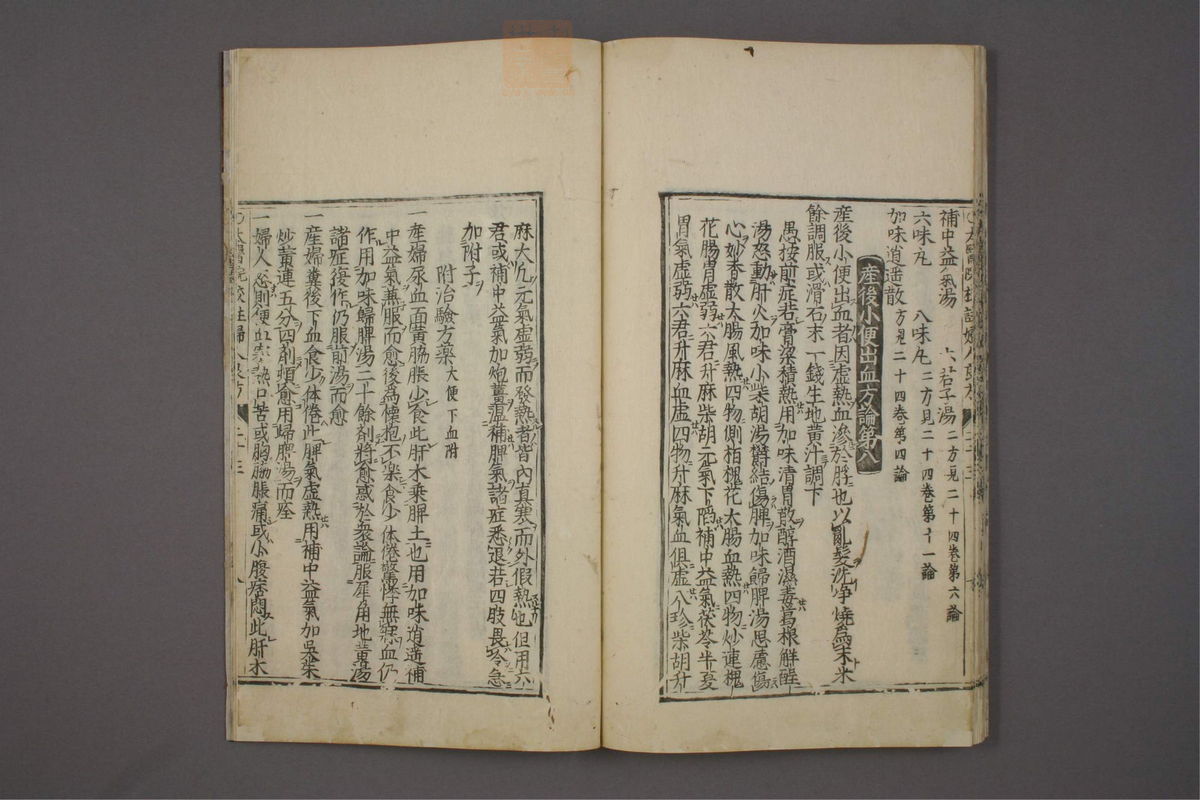 補中益氣湯　六君子湯 二方見二十四卷第六論
六味𠁽　八味𠁽 二方見二十四卷第十一論
加味逍遥散 方見二十四卷第四論
産後小便出血方論第八
産後小便出血者因虚熱血滲於脬也以亂髮洗净燒為末米
餘調服或滑石末一錢生地黄汁調下
愚按前症若膏粱積熱用加味清胃散醇酒濕毒葛根解酲
湯怒動肝火加味小柴胡湯欝結傷脾加味歸脾湯思慮傷
心妙香散大腸風熱四物側栢槐花大腸血熱四物炒連槐
花腸胃虚弱六君升麻柴胡元氣下陷補中益氣茯苓半夏
胃氣虚弱六君升麻血虚四物升麻氣血俱虚八珍柴胡升
麻大凢元氣虚弱而發熱者皆内真寒而外假熱也但用六
君或補中益氣加炮薑温補脾氣諸症悉退若四肢畏冷急
加附子
附治驗方藥 大便下血附
一産婦尿血面黄脇脹少食此肝木乗脾土也用加味逍遥補
中益氣兼服而愈後為懐抱不楽食少体倦驚悸無寐血仍
作用加味歸脾湯二十餘剤將愈惑於衆論服犀角地黄湯
諸症復作仍服前湯而愈
一産婦糞後下血食少体倦此脾氣虚熱用補中益氣加呉茱
炒黄連五分四剤頓愈用歸脾湯而痊
一婦人怒則便血寒熱口苦或胸脇脹痛或小腹痞悶此肝木